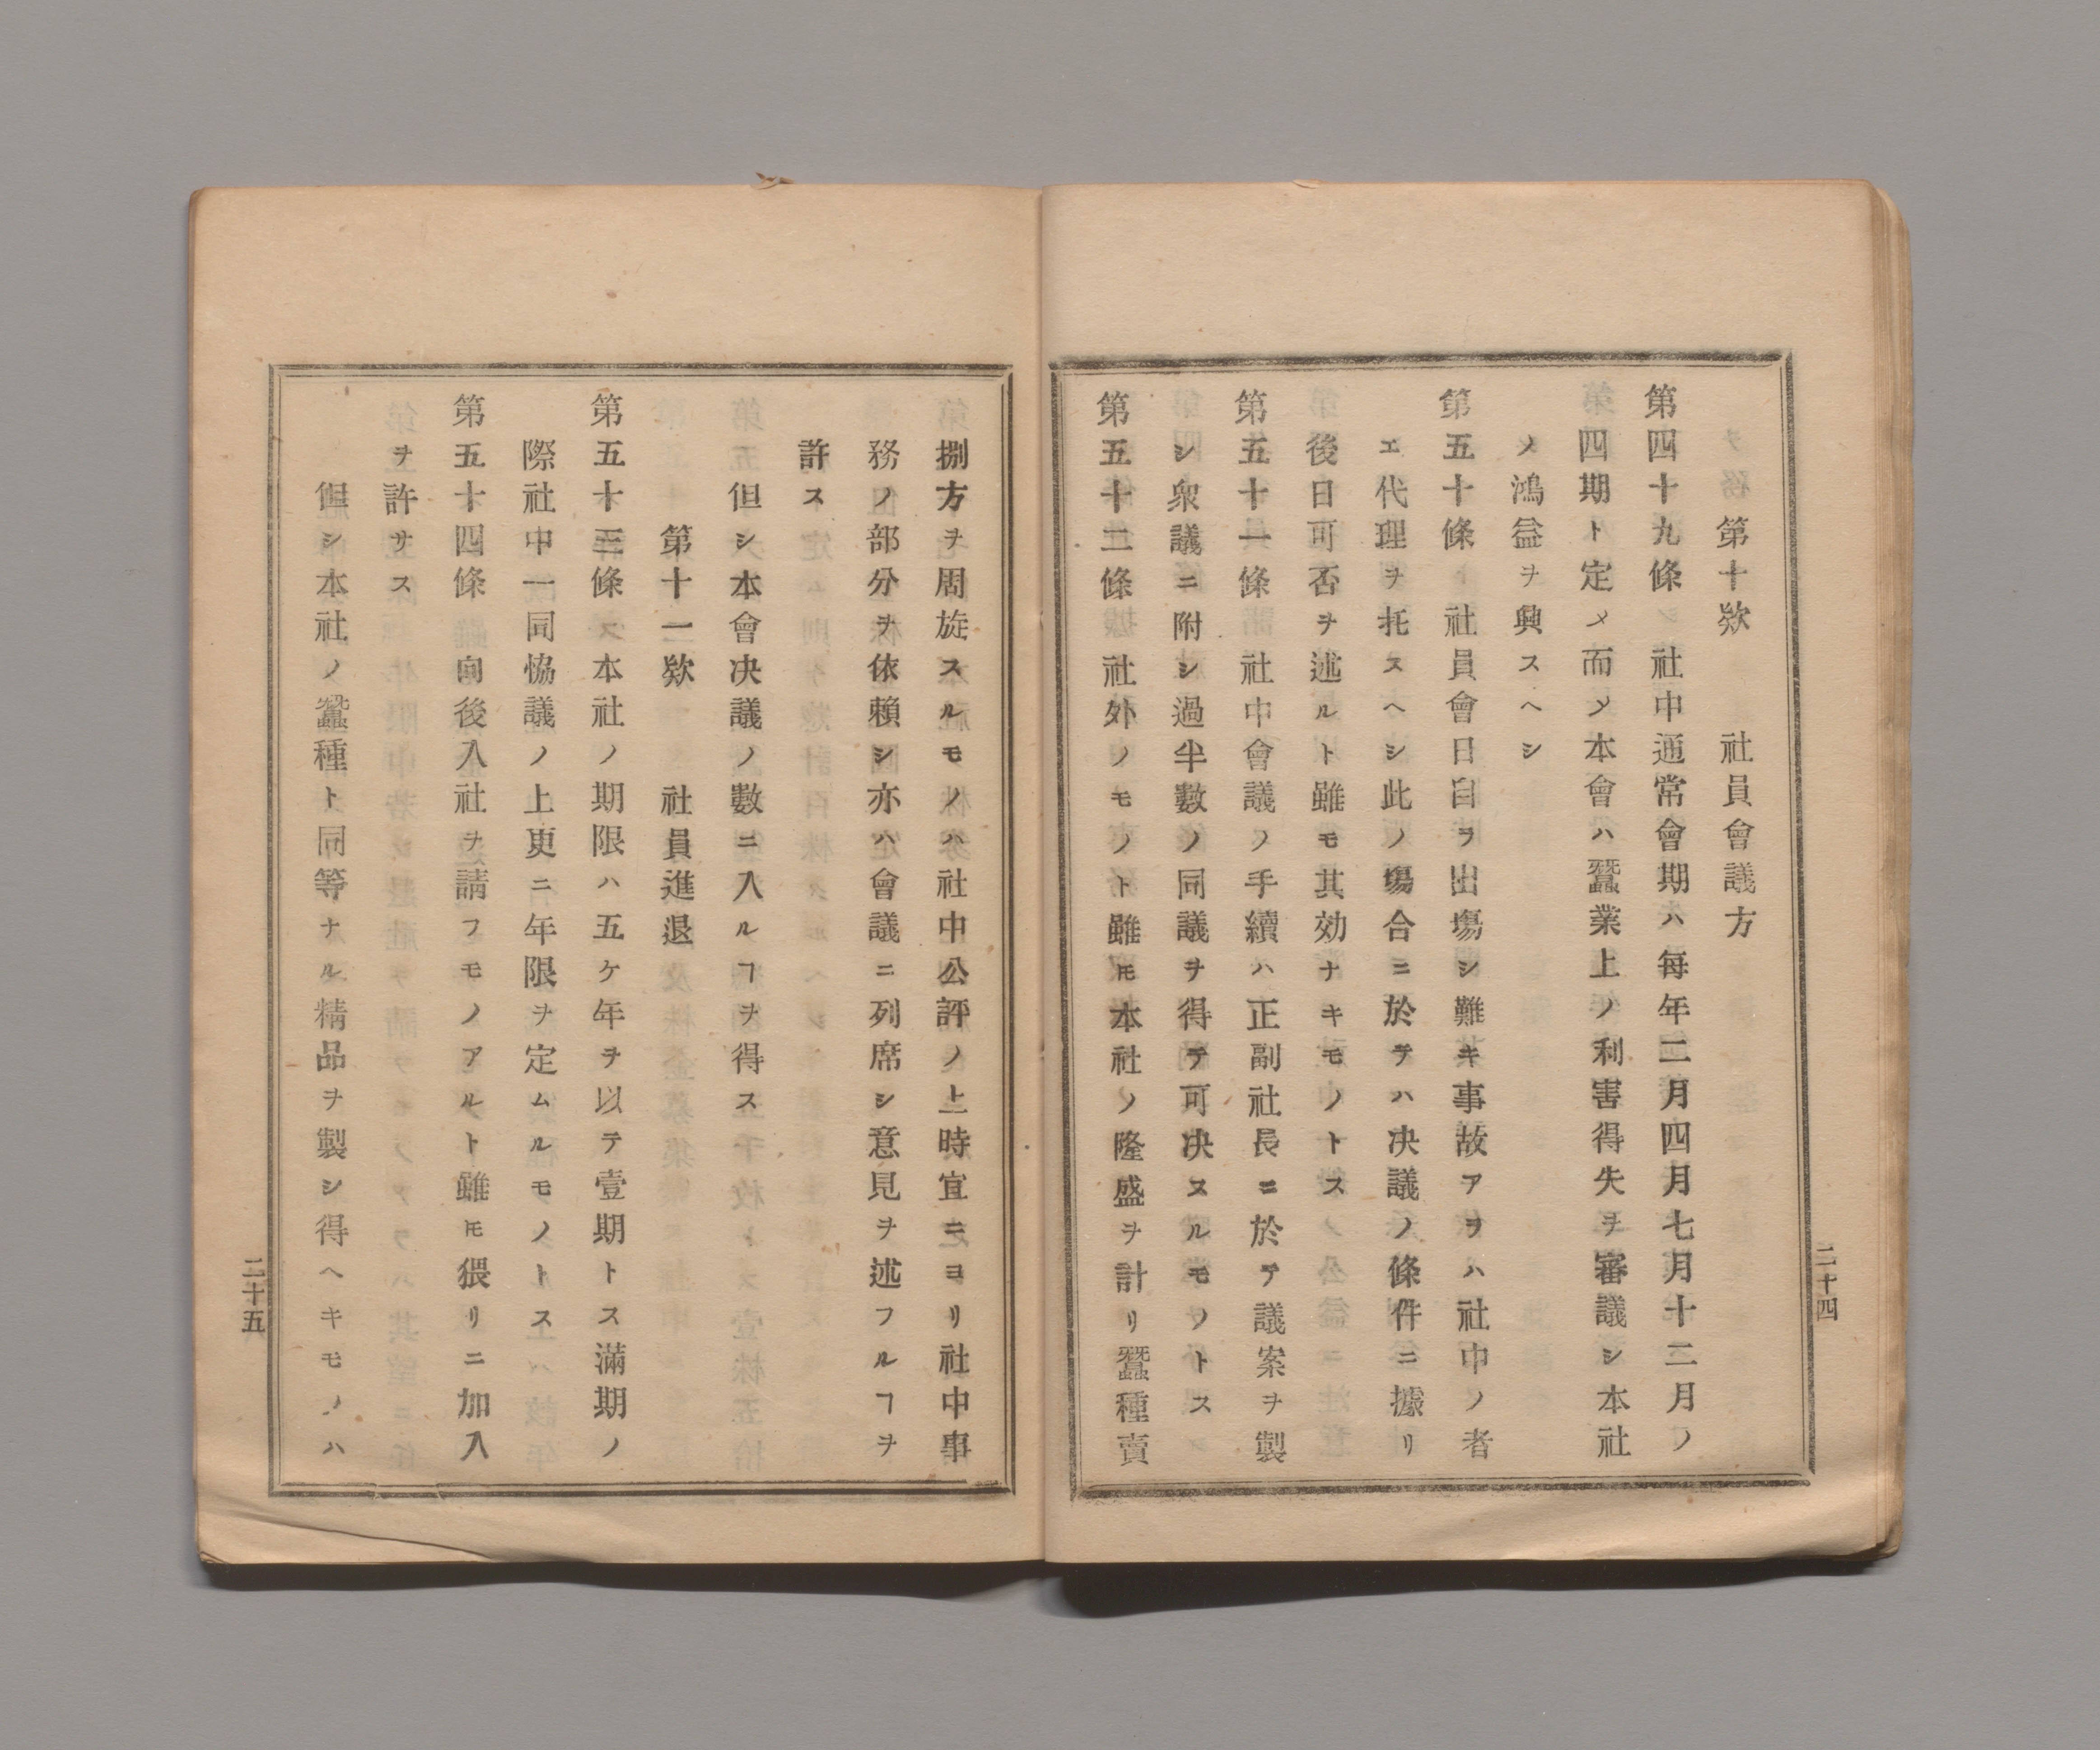 第十欵　社員會議方
第四十九條　社中通常會期ハ每年二月四月七月十二月ノ
四期ト定メ而〆本會ハ蠶業上ノ利害得失ヲ審議シ本社
ノ鴻益ヲ興スヘシ
第五十條　社員會日自ラ出塲シ難キ事故アラハ社中ノ者
エ代理ヲ托スヘシ此ノ塲合ニ於テハ决議ノ條件ニ據リ
後日可否ヲ述ルト雖モ其効ナキモノトス
第五十一條　社中會議ノ手續ハ正副社長ニ於テ議案ヲ製
シ衆議ニ附シ過半數ノ同議ヲ得テ可决スルモノトス
第五十二條　社外ノモノト雖𪜈本社ノ隆盛ヲ計リ蠶種賣
二十四
捌方ヲ周旋スルモノハ社中公評ノ上時宜ニヨリ社中事
務ノ部分ヲ依賴シ亦ハ會議ニ列席シ意見ヲ述フルヿヲ
許ス
但シ本會决議ノ數ニ入ルヿヲ得ス
第十一欵　社員進退
第五十三條　本社ノ期限ハ五ケ年ヲ以テ壹期トス滿期ノ
際社中一同恊議ノ上更ニ年限ヲ定ムルモノトス
第五十四條　向後入社ヲ請フモノアルト雖𪜈猥リニ加入
ヲ許サス
但シ本社ノ蠶種ト同等ナル精品ヲ製シ得ヘキモノハ
二十五